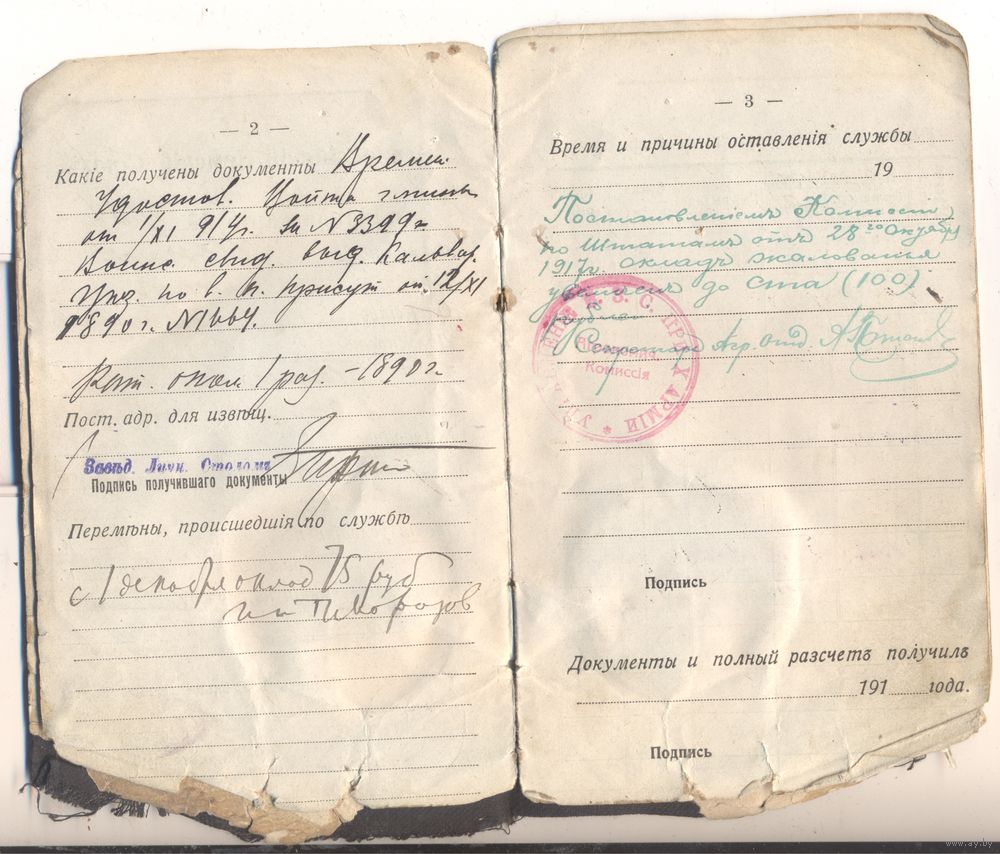 — 2 —
Какіе получены документы Времен.
Удостов.
от 1/XI 914г. за №3399
Воинс. свид. выд. Кальвар.
по в. п. присут. от 12/XI
1890г. №1664.
Кат. 1 раз. – 1890г
Пост. адр. для извѣщ.
Завѣд. Личн. Столомъ
Подпись получившаго документы
Перемѣны, происшедшія по службѣ
с 1 декабря оклад 75 руб
Морозов
— 3 —
Время и причины оставленія службы
19
Постановленіемъ Комиссіи
по Штатамъ отъ 28го Октября
1917г. окладъ жалованья
увеличенъ до ста (100)
рублей
Секретарь Агр. отд.
АРМІИ
Комиссія
Подпись
Документы и полный разсчетъ получилъ
191 года.
Подпись
www.ay.by